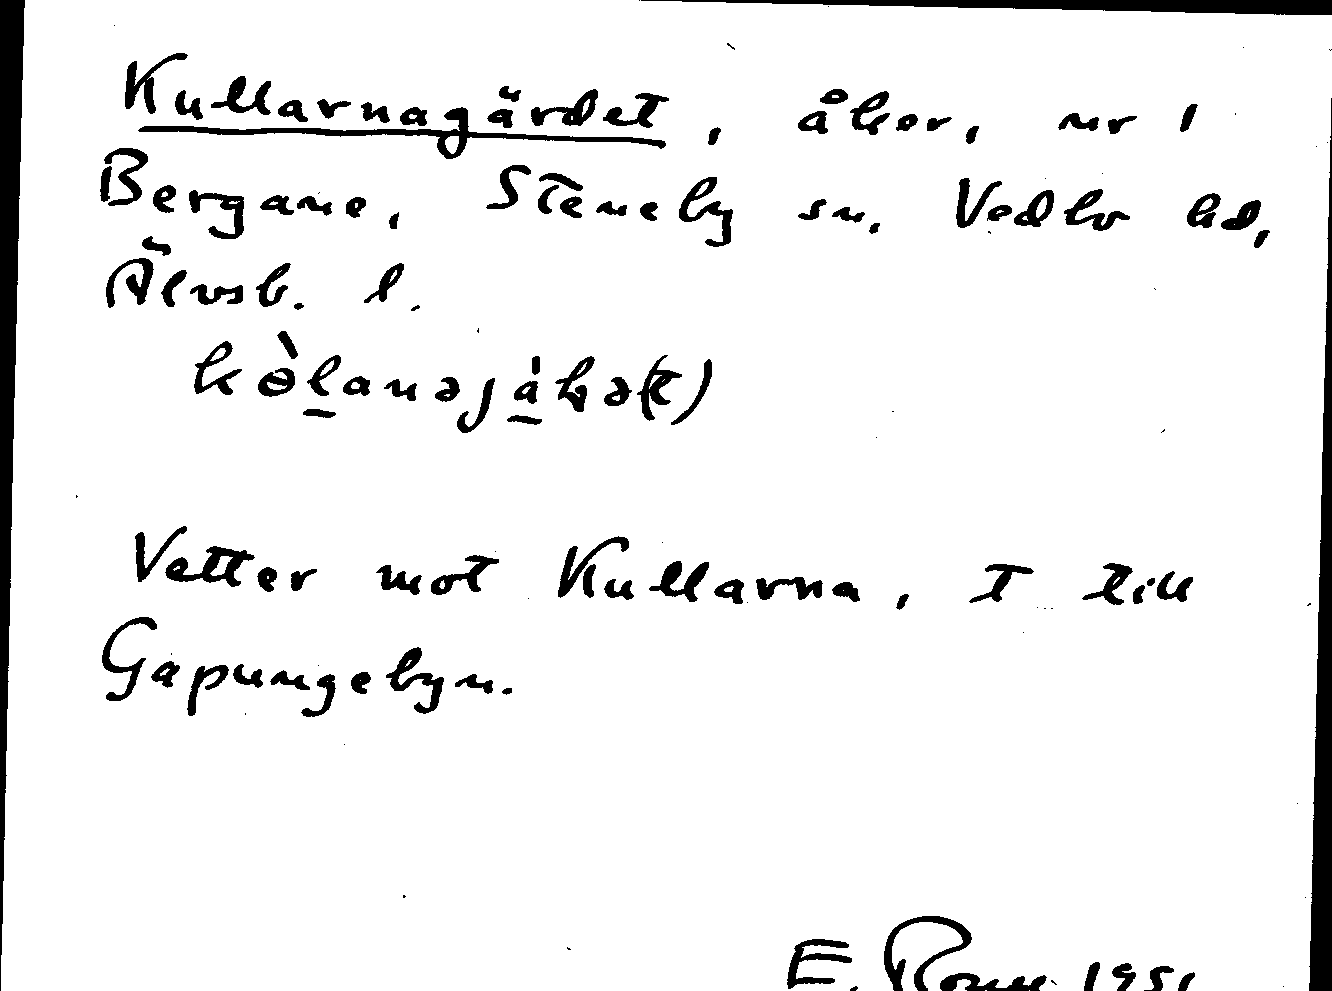 Kullarnagärdet, åker, nr 1
Bergane, Steneby sn. Vedbo hd,
Älvsb. l.
Vetter mot Kullarna, T till
Gapungebyn.
E. 1951